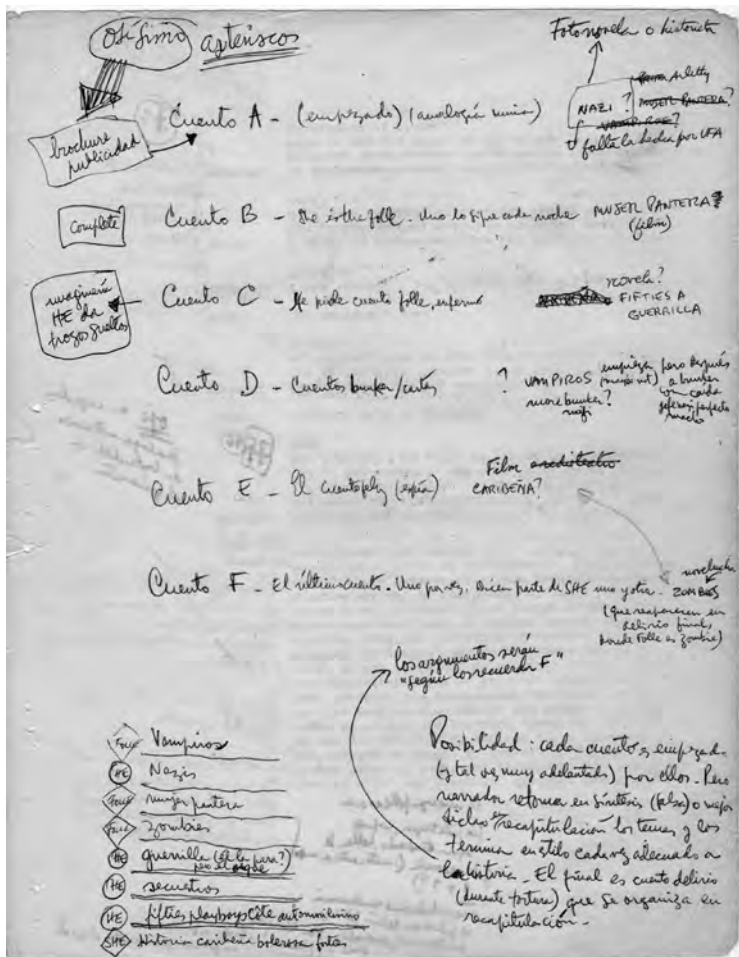 asteriscos
Fotonovela o historieta
brochure
publicidad
Cuento A - (empezado) (analogía
NAZI?
Arletty
MUJER PANTERA?
VAMPIROS?
falta la hecha por UFA
Complete
Cuento B - She is the folle. Uno lo sigue cada noche MUJER PANTERA?
(film)
imaginería
HE da
trozos sueltos
Cuento C - Me pide cuento folle, enfermo
novela?
FIFTIES A
GUERRILLA
Cuento D - Cuentos bunker/
? VAMPIROS
more bunker?
nazi
empiezan pero después
a bunker
con caída
perfecto
macho
Cuento E - El cuento feliz
Film
CARIBEÑA?
Cuento F - El último cuento. Uno por vez. Dicen parte de SHE uno y otra - ZOMBIES
(que reaparecen en
delirio final,
donde Folle es zombie)
los argumentos serán
"según los recuerda F"
Folle Vampiros
HE Nazis
Folle mujer pantera
Folle zombies
HE guerrilla
HE secuestros
HE fifties playboys Côte automovilismo
SHE Historia caribeña bolerosa forties
Posibilidad: cada cuento es empezado
(y tal vez muy adelantado) por ellos. Pero
narrador retoma en síntesis (falsa) o mejor
dicho "recapitulación" los temas y los
termina en estilo cada vez adecuado a
la historia. El final es cuento delirio
(durante tortura) que se organiza en
recapitulación.